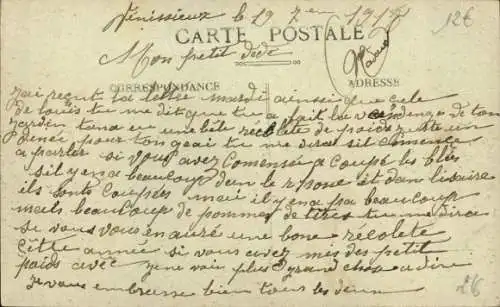 Vénissieux le 19 7re 1917
12€
CARTE POSTALE
Mon petit dédé
CORRESPONDANCE
ADRESSE
jai reçut ta lettre mardi ainsi que cele
de louis tu me dit que tu a fait la vendange de ton
jardin tan a eu une bele récolete de poids reste un
pour ton geai tu me diras sil comence
a parler si vous avez comensé a coupé les blés
sil y en a beaucoup dan le et dan lisaire
ils sont coupés mai il y en a pa beaucoup
mais beaucoup de pommes de tères tu me diras
si vous vous en auré une bone récolete
cette année si vous avez mis des petit
poids avec je ne voi plus grand chose a dire
je vous embrasse bien tous les deux
2€